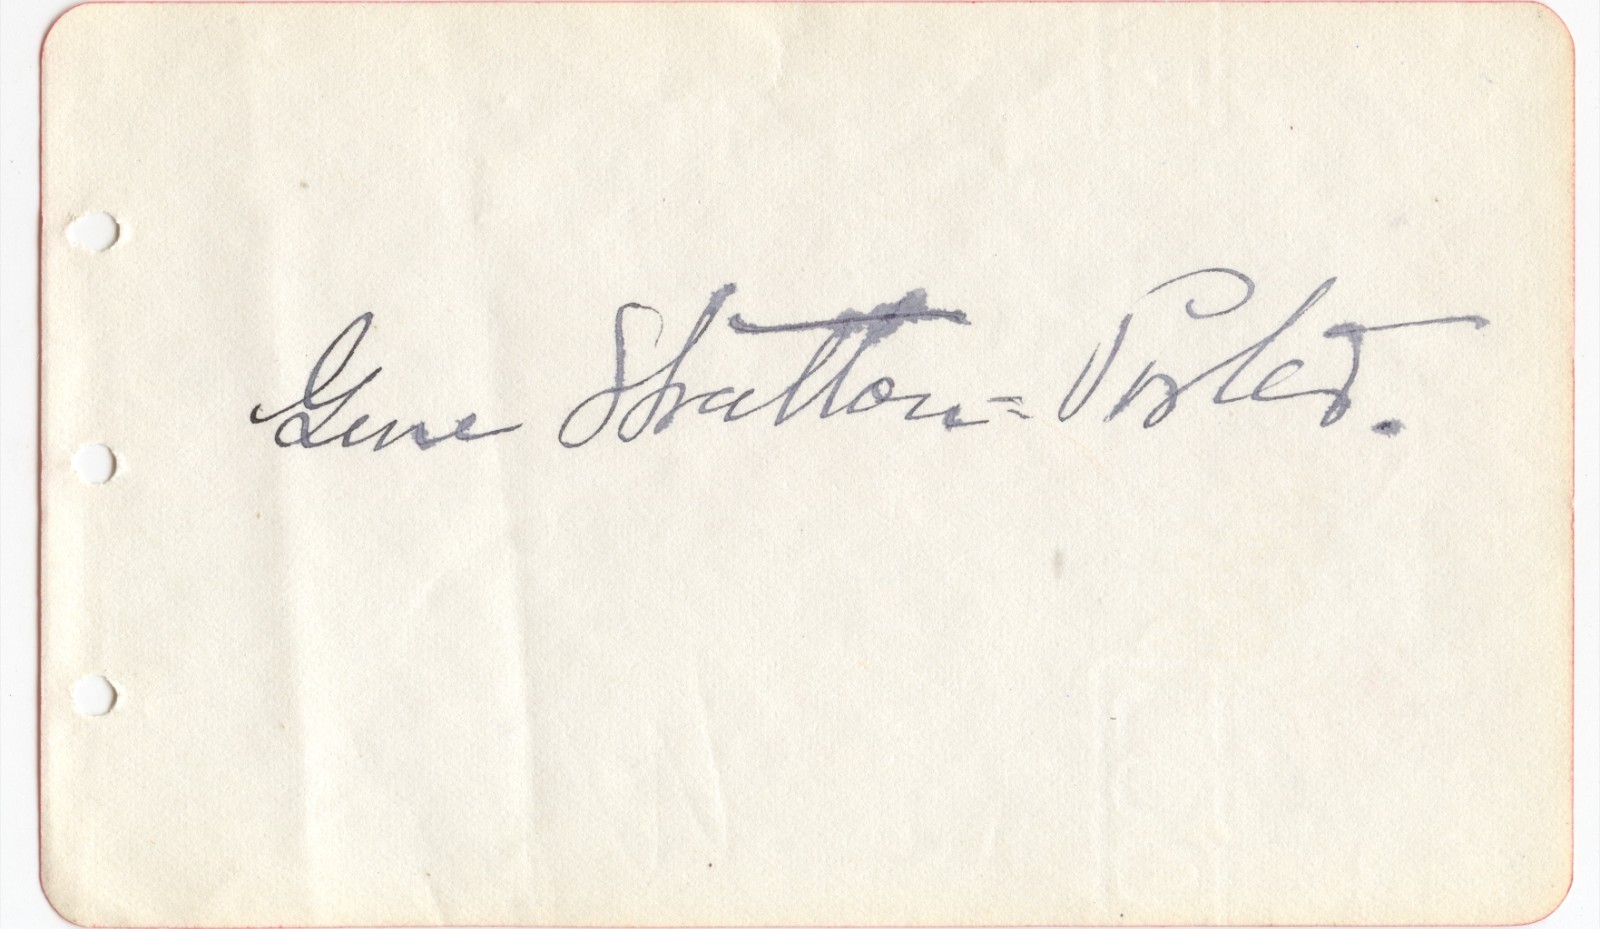 Gene Stratton-Porter.